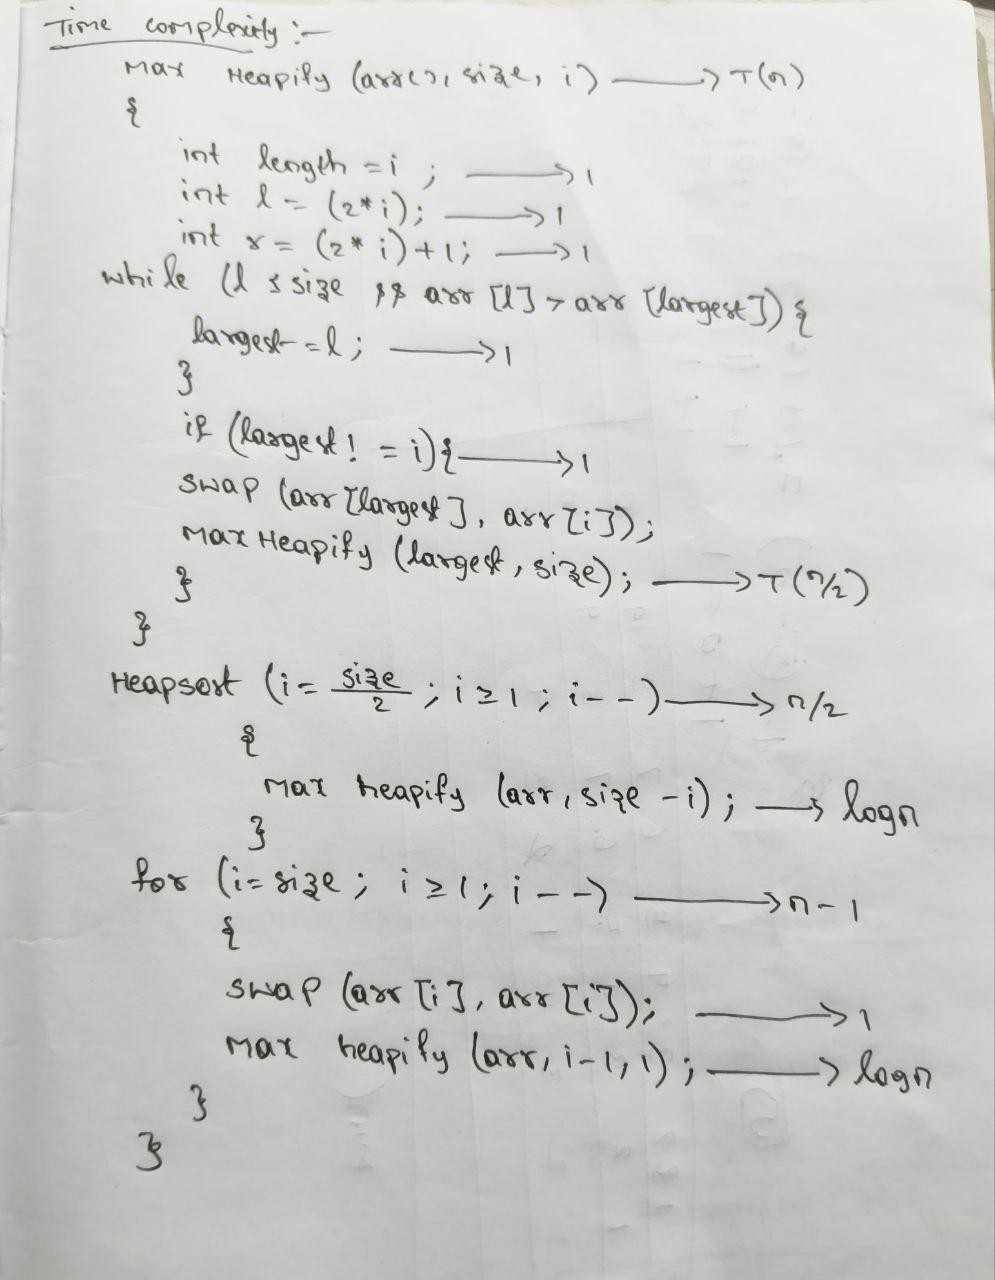 Time complexity :-
Max Heapify (arr[], size, i) ⟶ T(n)
{
int length = i ; ⟶ 1
int l = (2*i); ⟶ 1
int r = (2*i)+1; ⟶ 1
while (l ≤ size && arr [l] > arr [largest]) {
largest = l ; ⟶ 1
}
if (largest ! = i) { ⟶ 1
swap (arr [largest], arr [i]);
Max Heapify (largest, size); ⟶ T(n/2)
}
}
Heapsort (i = size/2 ; i ≥ 1 ; i--) ⟶ n/2
{
Max heapify (arr, size - i); ⟶ logn
}
for (i = size ; i ≥ 1; i--) ⟶ n-1
{
swap (arr [i], arr [i]); ⟶ 1
Max heapify (arr, i-1, 1); ⟶ logn
}
}